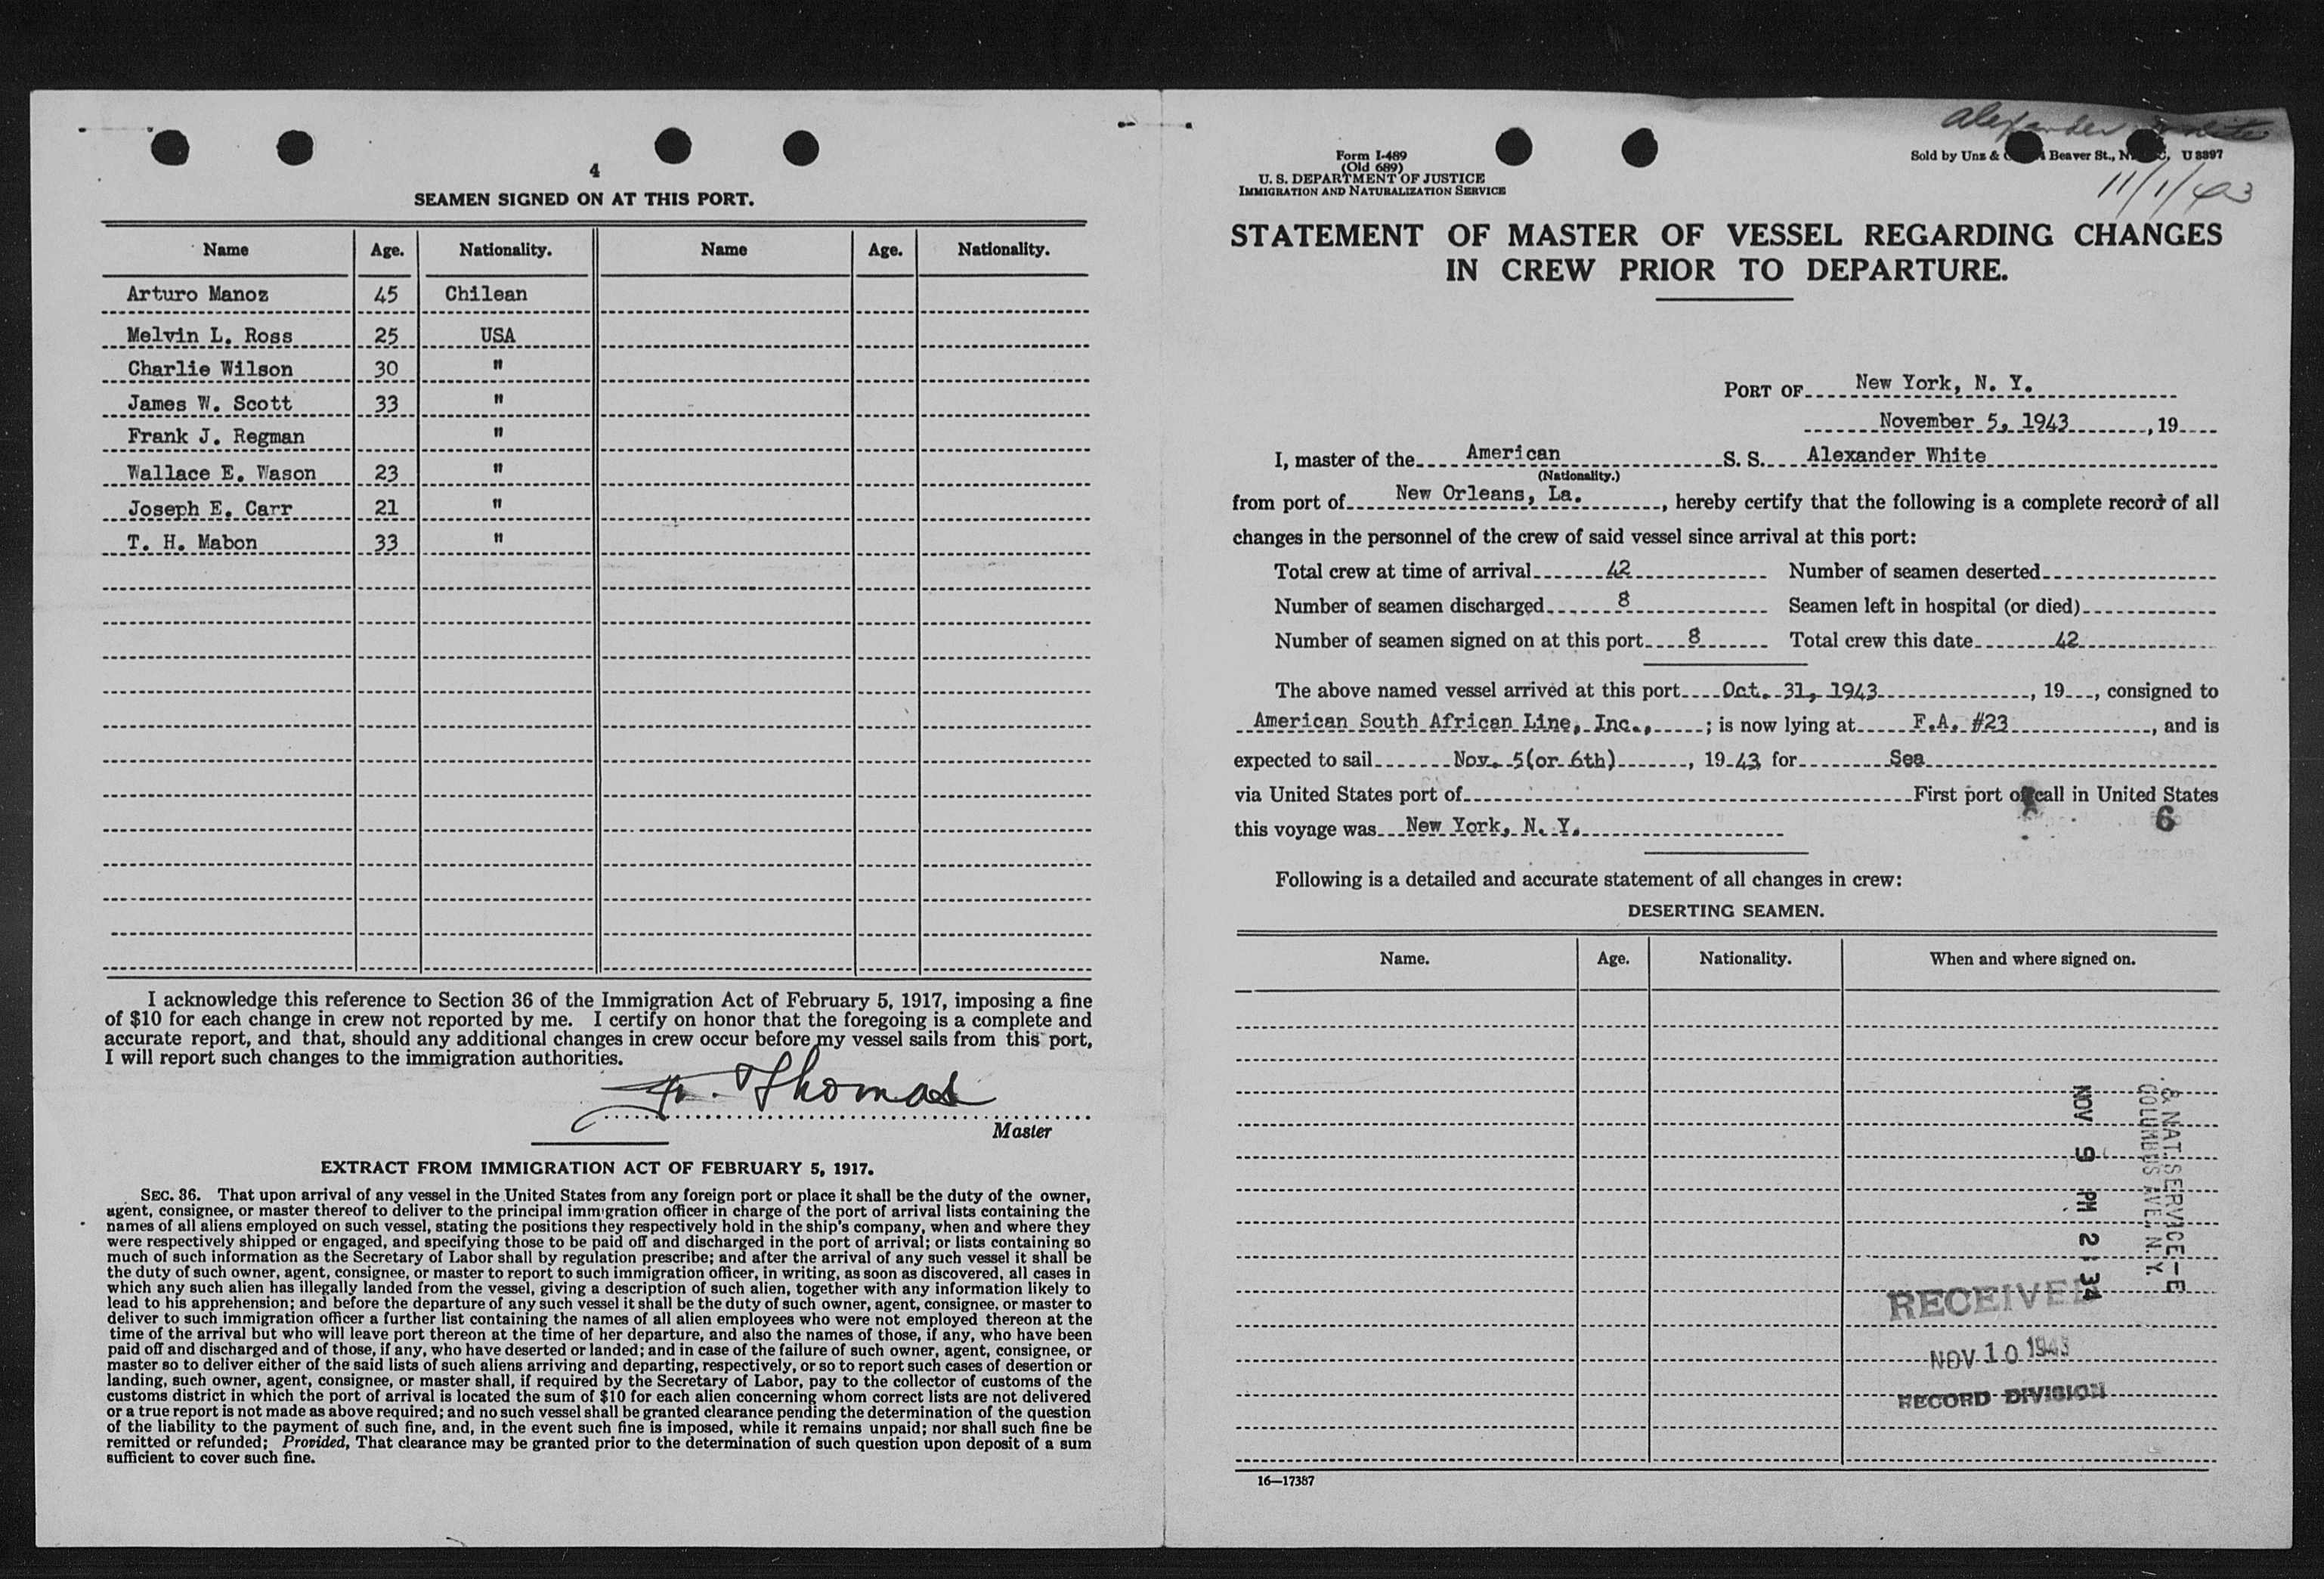 4
SEAMEN SIGNED ON AT THIS PORT.
Name Age. Nationality. Name Age. Nationality.
Arturo Manoz 45 Chilean
Melvin L. Ross 25 USA
Charlie Wilson 30 "
James W. Scott 33 "
Frank J. Regman "
Wallace E. Wason 23 "
Joseph E. Carr 21 "
T. H. Mabon 33 "
I acknowledge this reference to Section 36 of the Immigration Act of February 5, 1917, imposing a fine
of $10 for each change in crew not reported by me. I certify on honor that the foregoing is a complete and
accurate report, and that, should any additional changes in crew occur before my vessel sails from this port,
I will report such changes to the immigration authorities.
Thomas
Master
EXTRACT FROM IMMIGRATION ACT OF FEBRUARY 5, 1917.
SEC. 36. That upon arrival of any vessel in the United States from any foreign port or place it shall be the duty of the owner,
agent, consignee, or master thereof to deliver to the principal immigration officer in charge of the port of arrival lists containing the
names of all aliens employed on such vessel, stating the positions they respectively hold in the ship's company, when and where they
were respectively shipped or engaged, and specifying those to be paid off and discharged in the port of arrival; or lists containing so
much of such information as the Secretary of Labor shall by regulation prescribe; and after the arrival of any such vessel it shall be
the duty of such owner, agent, consignee, or master to report to such immigration officer, in writing, as soon as discovered, all cases in
which any such alien has illegally landed from the vessel, giving a description of such alien, together with any information likely to
lead to his apprehension; and before the departure of any such vessel it shall be the duty of such owner, agent, consignee, or master to
deliver to such immigration officer a further list containing the names of all alien employees who were not employed thereon at the
time of the arrival but who will leave port thereon at the time of her departure, and also the names of those, if any, who have been
paid off and discharged and of those, if any, who have deserted or landed; and in case of the failure of such owner, agent, consignee, or
master so to deliver either of the said lists of such aliens arriving and departing, respectively, or so to report such cases of desertion or
landing, such owner, agent, consignee, or master shall, if required by the Secretary of Labor, pay to the collector of customs of the
customs district in which the port of arrival is located the sum of $10 for each alien concerning whom correct lists are not delivered
or a true report is not made as above required; and no such vessel shall be granted clearance pending the determination of the question
of the liability to the payment of such fine, and, in the event such fine is imposed, while it remains unpaid; nor shall such fine be
remitted or refunded; Provided, That clearance may be granted prior to the determination of such question upon deposit of a sum
sufficient to cover such fine.
Alexander White
11/1/43
Form I-489
(Old 689)
U. S. DEPARTMENT OF JUSTICE
IMMIGRATION AND NATURALIZATION SERVICE
Sold by Unz & Beaver St., U 3397
STATEMENT OF MASTER OF VESSEL REGARDING CHANGES
IN CREW PRIOR TO DEPARTURE.
PORT OF New York, N. Y.
November 5, 1943, 19
I, master of the American S. S. Alexander White
(Nationality.)
from port of New Orleans, La., hereby certify that the following is a complete record of all
changes in the personnel of the crew of said vessel since arrival at this port:
Total crew at time of arrival 42 Number of seamen deserted
Number of seamen discharged 8 Seamen left in hospital (or died)
Number of seamen signed on at this port 8 Total crew this date 42
The above named vessel arrived at this port Oct. 31, 1943, 19, consigned to
American South African Line, Inc.,; is now lying at F.A. #23, and is
expected to sail Nov. 5(or 6th), 1943 for Sea
via United States port of First port of call in United States
this voyage was New York, N. Y.
6
Following is a detailed and accurate statement of all changes in crew:
DESERTING SEAMEN.
Name. Age. Nationality. When and where signed on.
& NAT. SERVICE-E
COLUMBUS AVE., N.Y.
NOV 9 PM 2 34
RECEIVED
NOV 10 1943
RECORD DIVISION
16—17387